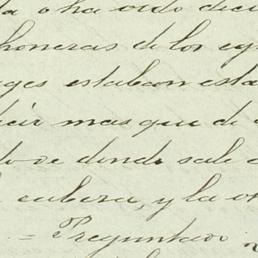 a o ha oido deci
honeras de los eq
ges estaban esta
decir mas que de
do de donde sale
cabera, y la o
= Preguntado